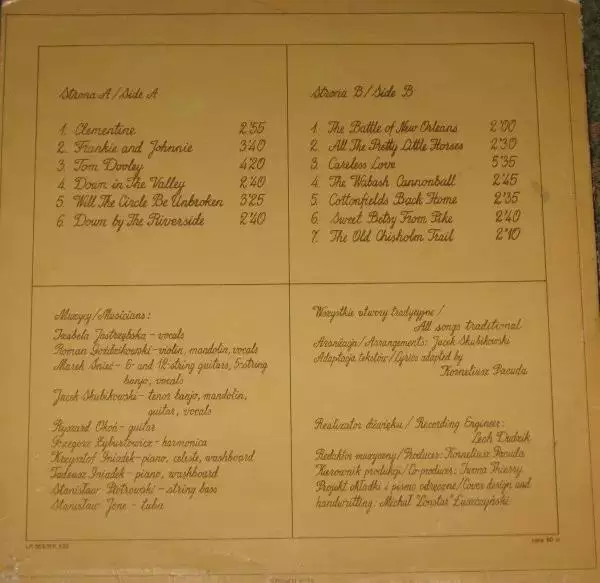 Strona A / Side A
1. Clementine 2'55
2. Frankie and Johnnie 3'40
3. Tom Dooley 4'20
4. Down in The Valley 2'40
5. Will The Circle Be Unbroken 3'25
6. Down by The Riverside 2'40
Strona B / Side B
1. The Battle of New Orleans 2'00
2. All The Pretty Little Horses 2'30
3. Careless Love 5'35
4. The Wabash Cannonball 2'45
5. Cottonfields Back Home 2'35
6. Sweet Betsy From Pike 2'40
7. The Old Chisholm Trail 2'10
Muzycy / Musicians:
Izabela Jastrzębska - vocals
Roman - violin, mandolin, vocals
Marek Śnieć - 6- and 12-string guitars, 5-string
banjo, vocals
Jacek Skubikowski - tenor banjo, mandolin,
guitar, vocals
Ryszard Okoń - guitar
Grzegorz - harmonica
Krzysztof Śniadek - piano, celeste, washboard
Tadeusz Śniadek - piano, washboard
Stanisław Piotrowski - string bass
Stanisław Jone - tuba
Wszystkie utwory tradycyjne /
All songs traditional
Aranżacja / Arrangements: Jacek Skubikowski
Adaptacja tekstów / Lyrics adapted by
Korneliusz Pacuda
Realizator dźwięku / Recording Engineer:
Lech Dudzik
Redaktor muzyczny / Producer: Korneliusz Pacuda
Kierownik produkcji / Co-producer: Iwona Thierry
Projekt okładki i pismo odręczne / Cover design and
handwritting: Michał "Lonstar" Łuszczyński